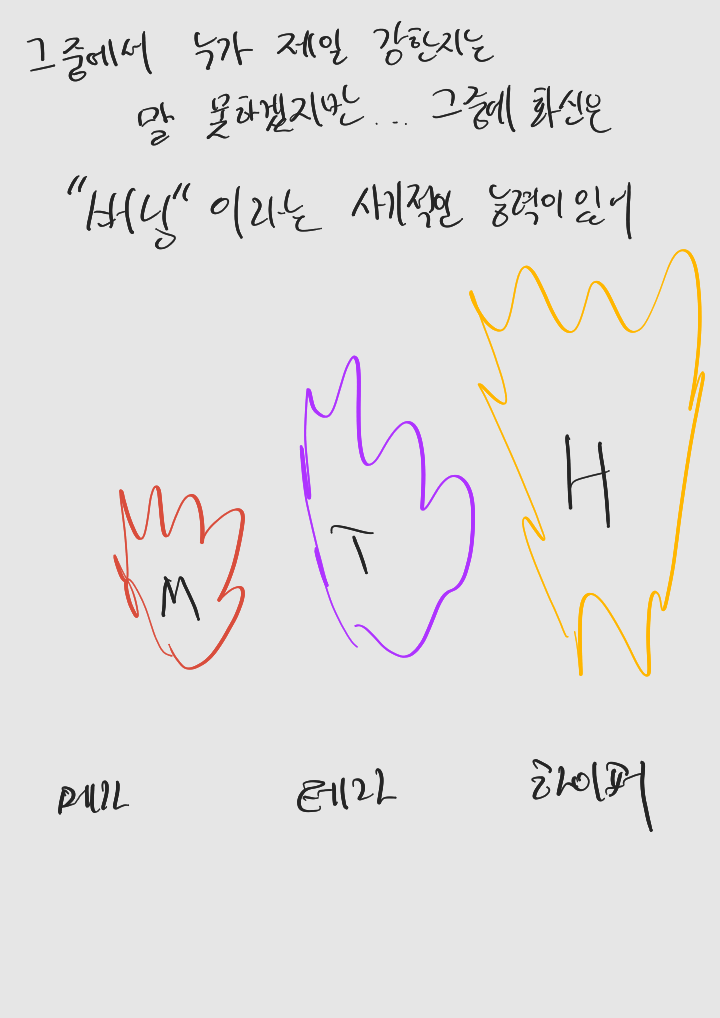 그 중에서 누가 제일 강한지는
말 못하겠지만... 그중에 화신은
"버닝" 이라는 사기적인 능력이 있어
H
T
M
메가 테라 하이퍼